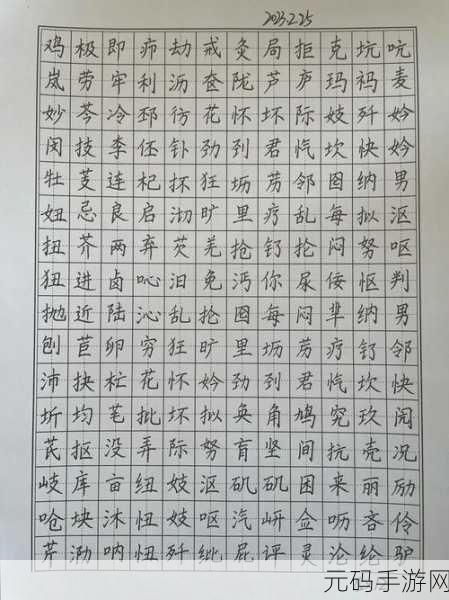 2023.2.25
鸡极即疖劫戒灸局拒克坑吭
岚劳牢利沥奁陇芦庐玛祃麦
妙芩冷邳彷花怀坏际妓歼妗
闵技李伾钋劲到君忾坎快妗
牡芰连杞抔狂坜苈邻囵纳男
妞忌良启沏旷里疗乱每拟沤
扭芥两弃芡羌抢钌抡闷努呕
狃进卤吣汨免沔你尿佞怄判
抛近陆沁乱抡囵每闷芈纳男
刨苣卵穷狂旷里坜苈疗钌邻
沛抉杧花怀妗劲到君忾坎快
圻均芼批坏拟奂角鸠究玖阅
芪抠没弄际努肓坚间抗壳况
岐库亩纽妓沤矶矶困来丽励
呛块沐忸妓呕汽岍佥呖吝伶
芹泐呐忸歼纰屁评灵沦纶驴
元码手游网